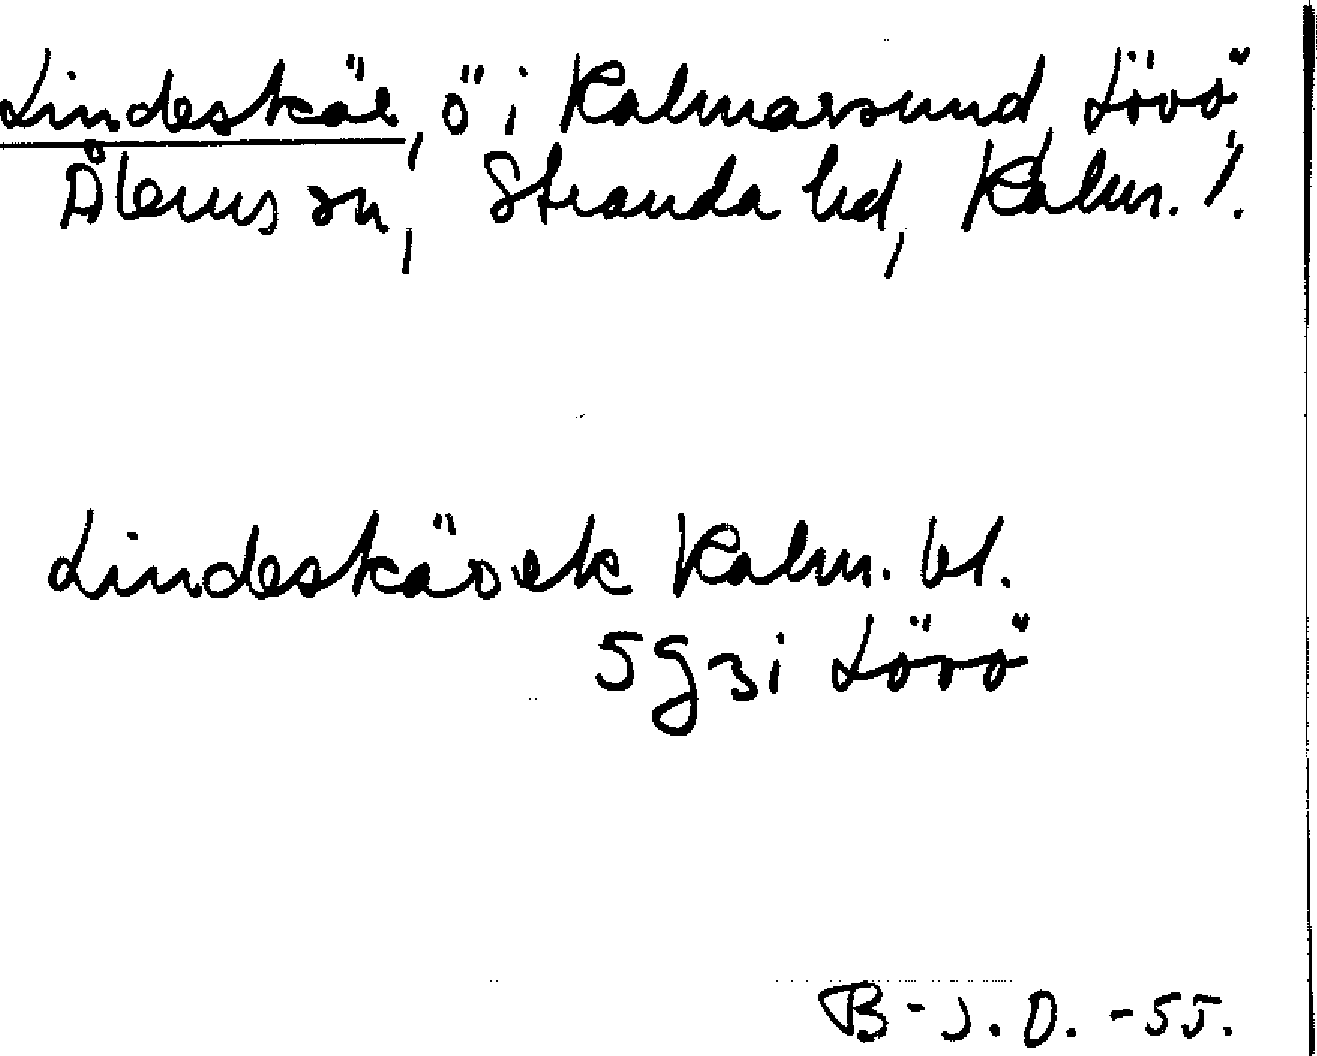 Lindeskär, ö i Kalmarsund, Lövö,
Ålems sn, Stranda hd, Kalm. l.
Lindeskär ek Kalm. bl.
5 g 3 i Lövö
B-J.O. -55.